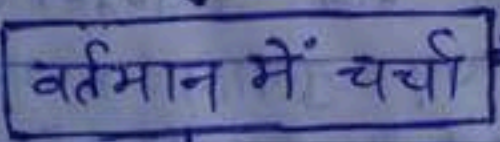 वर्तमान में चर्चा